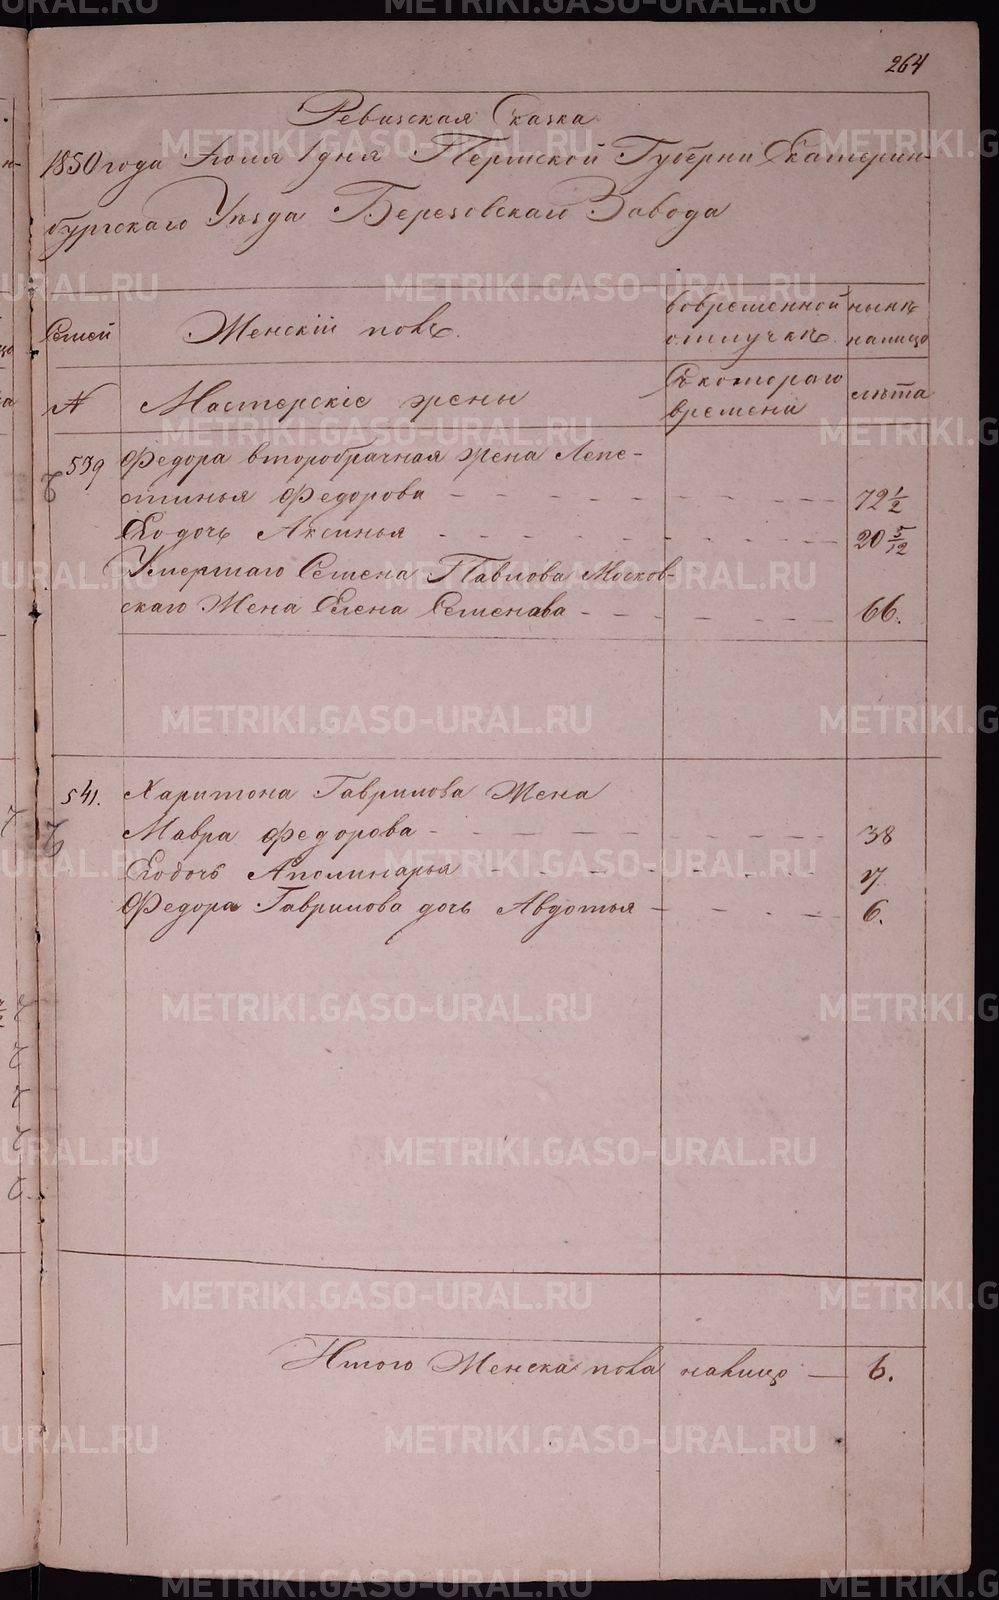 264
Ревизская Сказка
1850 года Июля 1 дня Пермской Губерни Екатерин-
бургского Уѣзда Березовскаго Завода
Семей
Женскій полъ.
вовременной
отлучкѣ
нынѣ
налицо
№
Мастерскіе жены
Съкотораго
времени
лѣта
539
Федора второбрачная жена Лепе-
стинья Федорова 72 1/2
Ево дочь Аксинья 20 5/12
Умершаго Семена Павлова Москов-
скаго Жена Елена Семенава 66.
541.
Харитона Гаврилова Жена
Мавра Федорова 38
Ево дочь Аполинарья 7
Федора Гаврилова дочь Авдотья 6.
Итого Женска пола налицо — 6.
METRIKI.GASO-URAL.RU